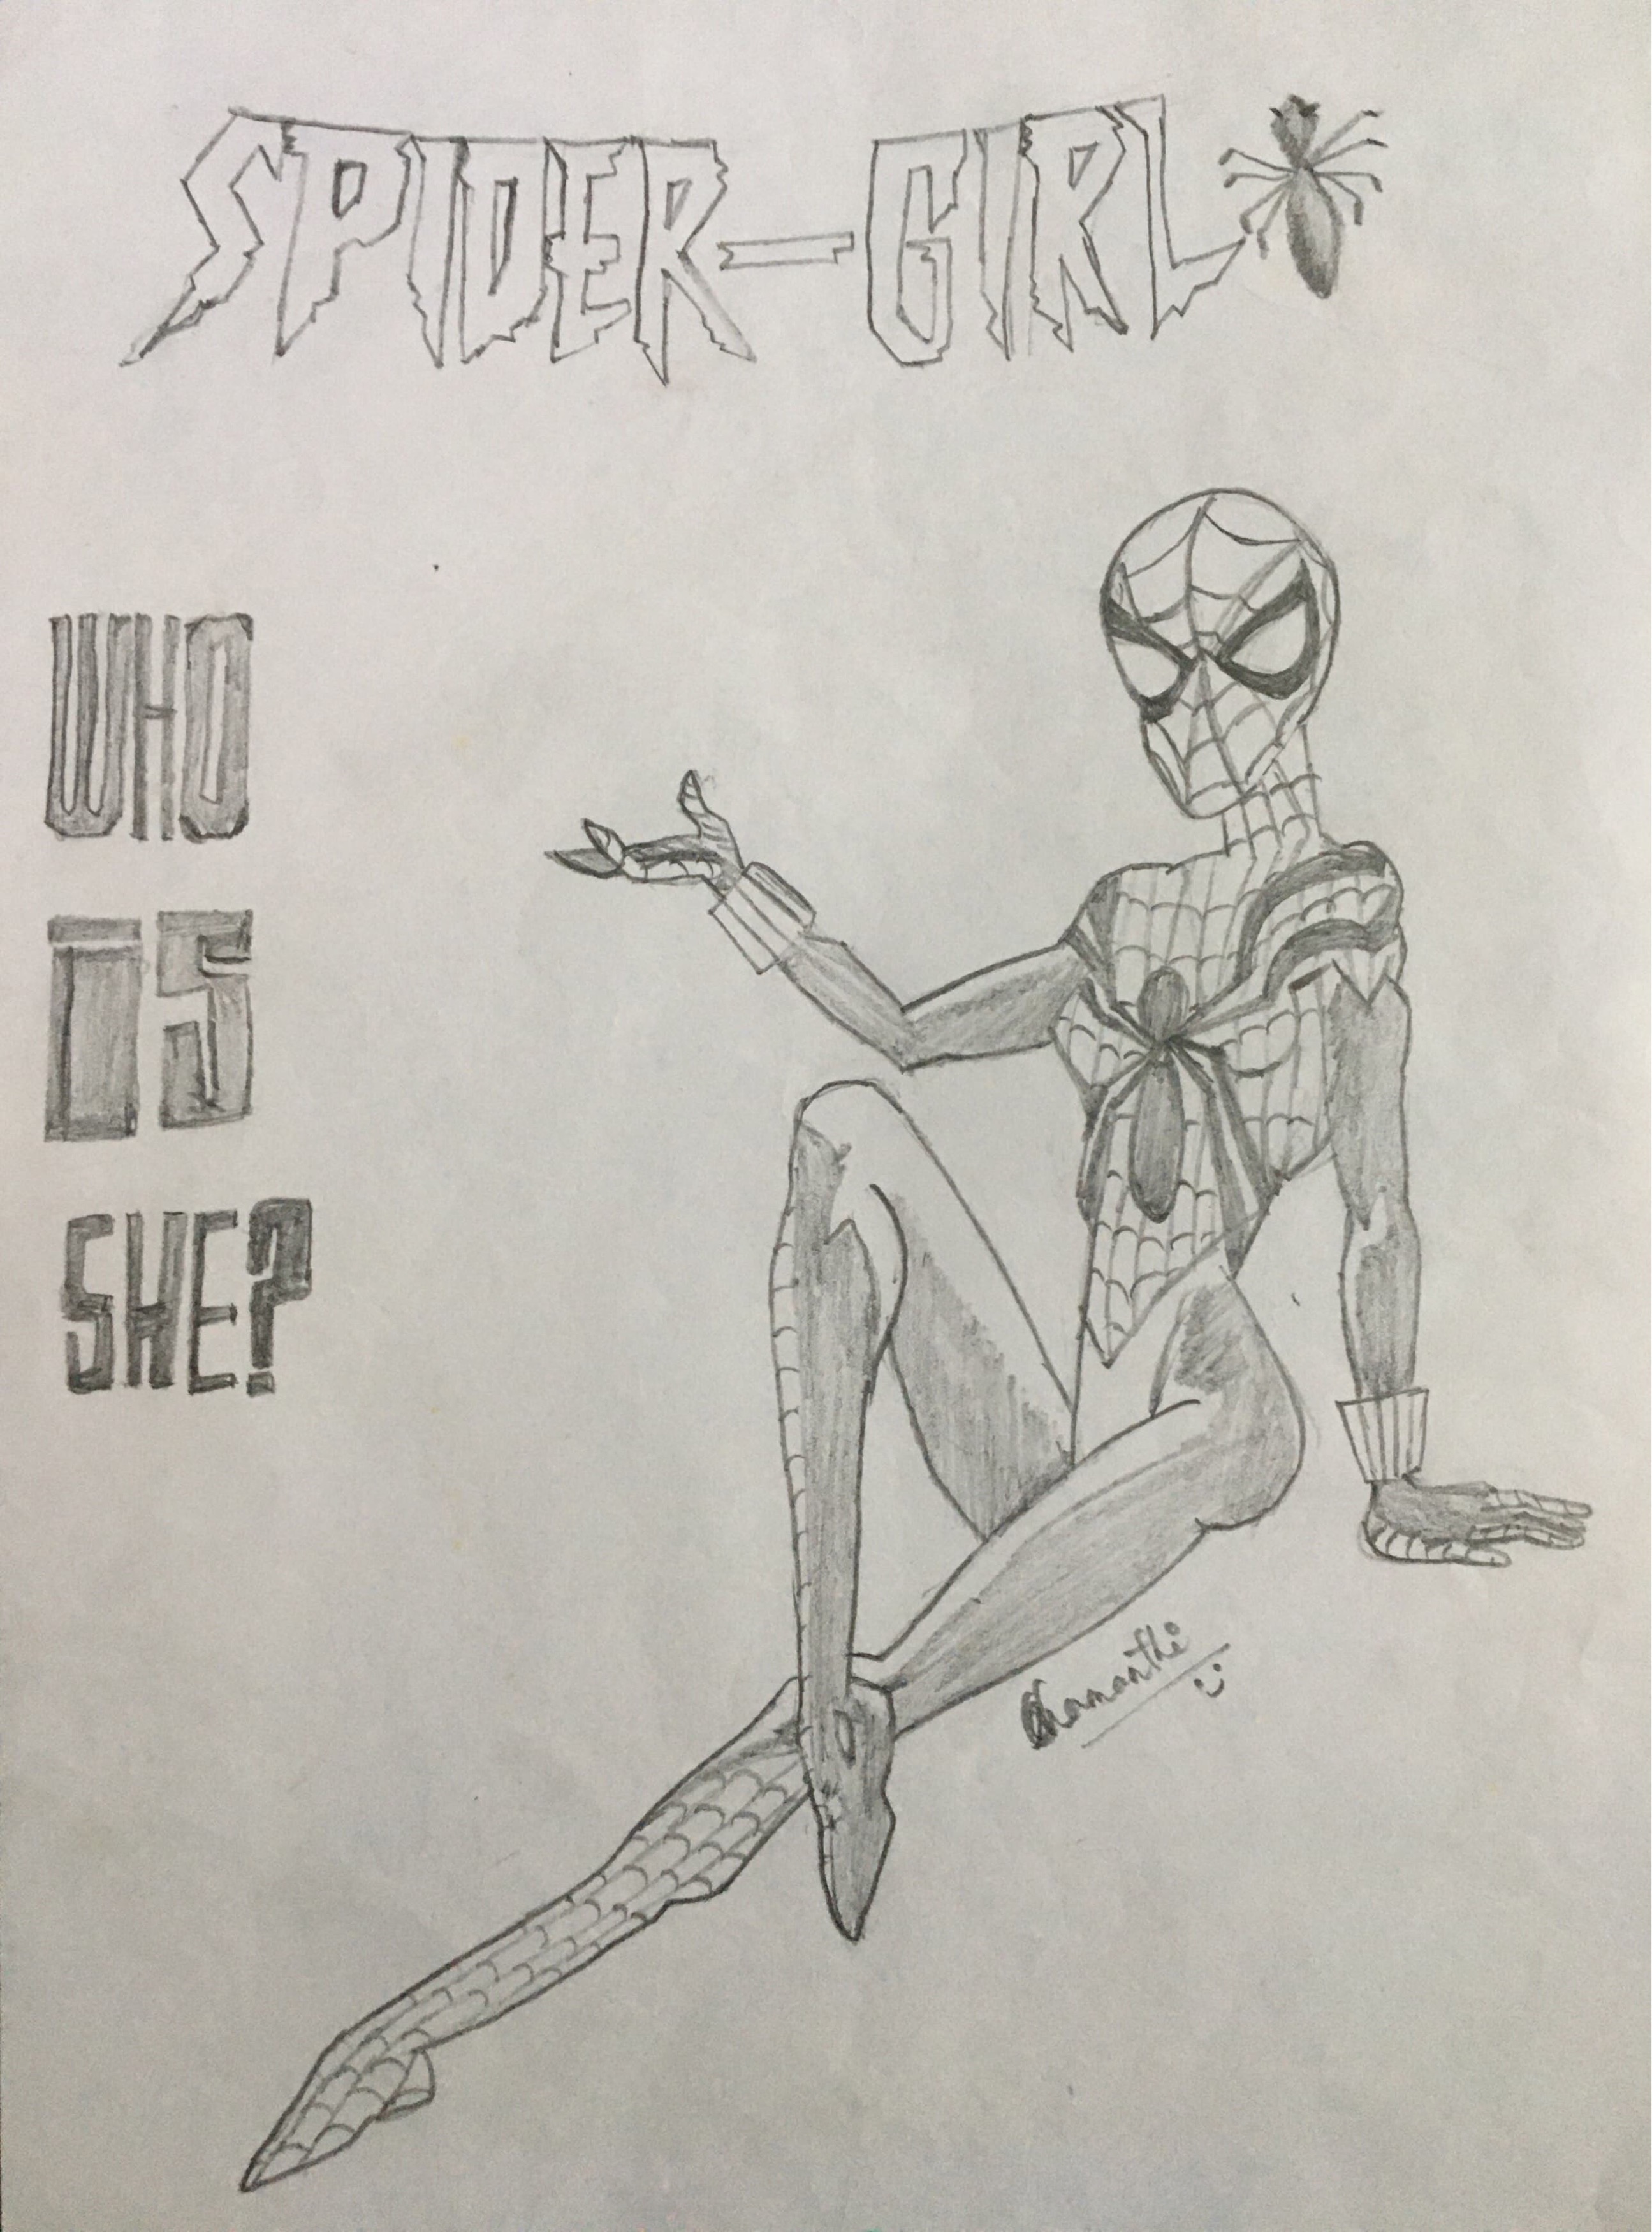 SPIDER-GIRL
WHO
IS
SHE?
Chamanthi